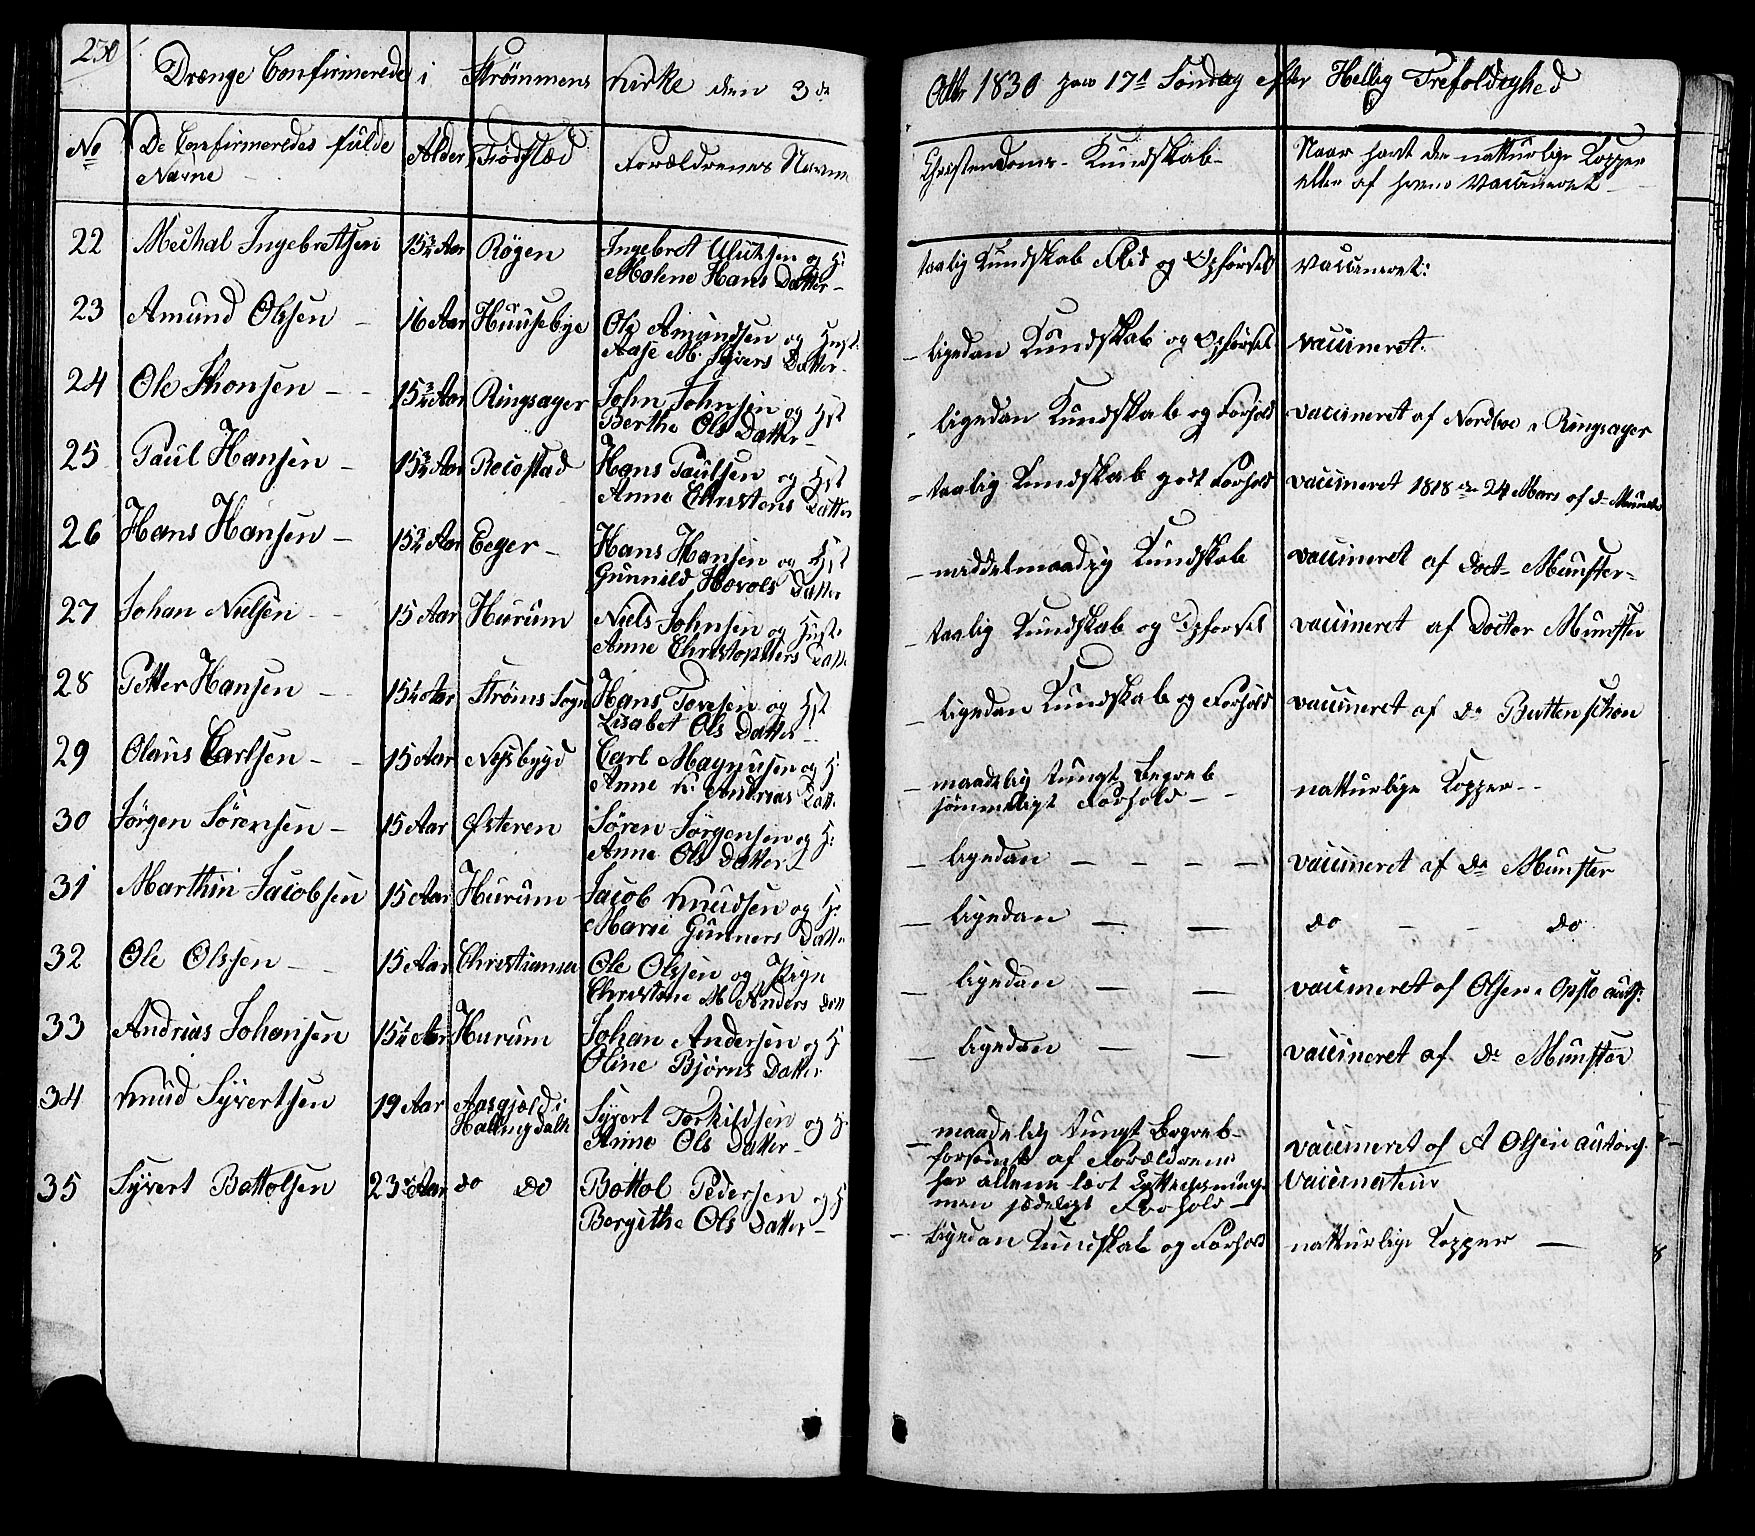 230
Drænge Confirmerede i Strømmens Kirke den 3de
Octbr 1830 paa 17d Søndag efter Hellig Trefoldighed
No De Confirmeredes fulde Navne Alder Fødsted Forældrenes Navne
Christendoms-Kundskab Naar havt de natturlige Kopper eller af hvem Vaccineret
22 Michal Ingebretsen 15¾ Aar Røgen Ingebret Ulriksen og H:
Malene Hans Datter
taalig Kundskab Flid og Opførsel vaccineret:
23 Amund Olssen 16 Aar Huusebye Ole Amundsen og Hust:
Aase M. Syvers Datter
ligedan Kundskab og Opførsel vaccineret.
24 Ole Jhonsen 15¾ Aar Ringsager John Johnsen og Hst
Berthe Ols Datter
ligedan Kundskab og Forhold vaccineret af Nordboe i Ringsager
25 Paul Hansen 15¾ Aar Hans Paulsen og Hst
Anne Christens Datter
taalig Kundskab godt Forhold vaccineret 1818 den 24 Mars af dr Münster
26 Hans Hansen 15¾ Aar Eeger Hans Hansen og Hst
Gunnild Hovols Datter
middelmaadig Kundskab vaccineret af Doct- Münster
27 Johan Nielsen 15 Aar Hurum Niels Johnsen og Hust:
Anne Christophers Datt
taalig Kundskab og Opførsel vaccineret af Docter Münster
28 Petter Hansen 15¼ Aar Strøms Sogn Hans Toresen og Hst
Lisabet Ols Datter
ligedan Kundskab og Forhold vaccineret af Dr Buttenschon
29 Olaus Carlsen 15 Aar Nesbygd Carl Magnusen og H:
Anne K: Andreas Datt.
maadelig tungt Begreb
sømmeligt Forhold natturlige Kopper
30 Jørgen Sørensen 15 Aar Østeren Sören Jørgensen og H:
Anne Ols Datter
ligedan vaccineret af Dr Münster
31 Marthin Jacobsen 15 Aar Hurum Jacob Knudsen og H:
Marie Gunners Datt.
ligedan do do
32 Ole Olssen 15 Aar Christiania Ole Olssen og Pige
Christine M Anders Datt
ligedan vaccineret af Olsen i Opslo auth:
33 Andrias Johansen 15¼ Aar Hurum Johan Andersen og H
Oline Bjørns Datter
ligedan vaccineret af Dr Münster
34 Knud Syvertsen 19 Aar Aasgjeld i
Hallingdalh Syvert Torkildsen og H:
Anne Ols Datter
maadelig tungt Begreb
forsømt af Forældrene
har allene lært
men sædeligt Forhold vaccineret af A Olsen autoris:
vaccinateur
35 Syvert Bottolsen 23 Aar do do Bottol Pedersen og H
Bergithe Ols Datter
ligedan Kundskab og Forhold natturlige Kopper